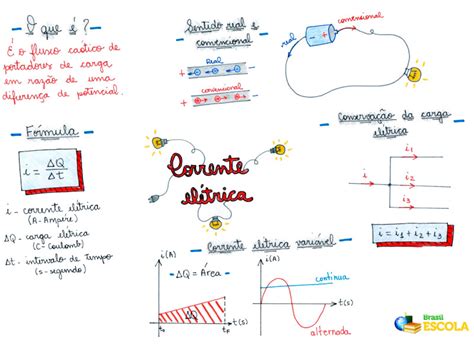 O que é?
É o fluxo caótico de
portadores de carga
em razão de uma
diferença de potencial.
Sentido real e
convencional
Real
convencional
real
convencional
Fórmula
i = ΔQ
Δt
i - corrente elétrica
(A - Ampère)
ΔQ - carga elétrica
(C - Coulomb)
Δt - intervalo de tempo
(s - segundo)
Corrente
elétrica
Conservação da carga
elétrica
i1
i2
i3
i = i1 + i2 + i3
Corrente elétrica variável
i(A)
ΔQ = Área
ΔQ
t0
tF
t(s)
i(A)
contínua
t(s)
alternada
Brasil
ESCOLA